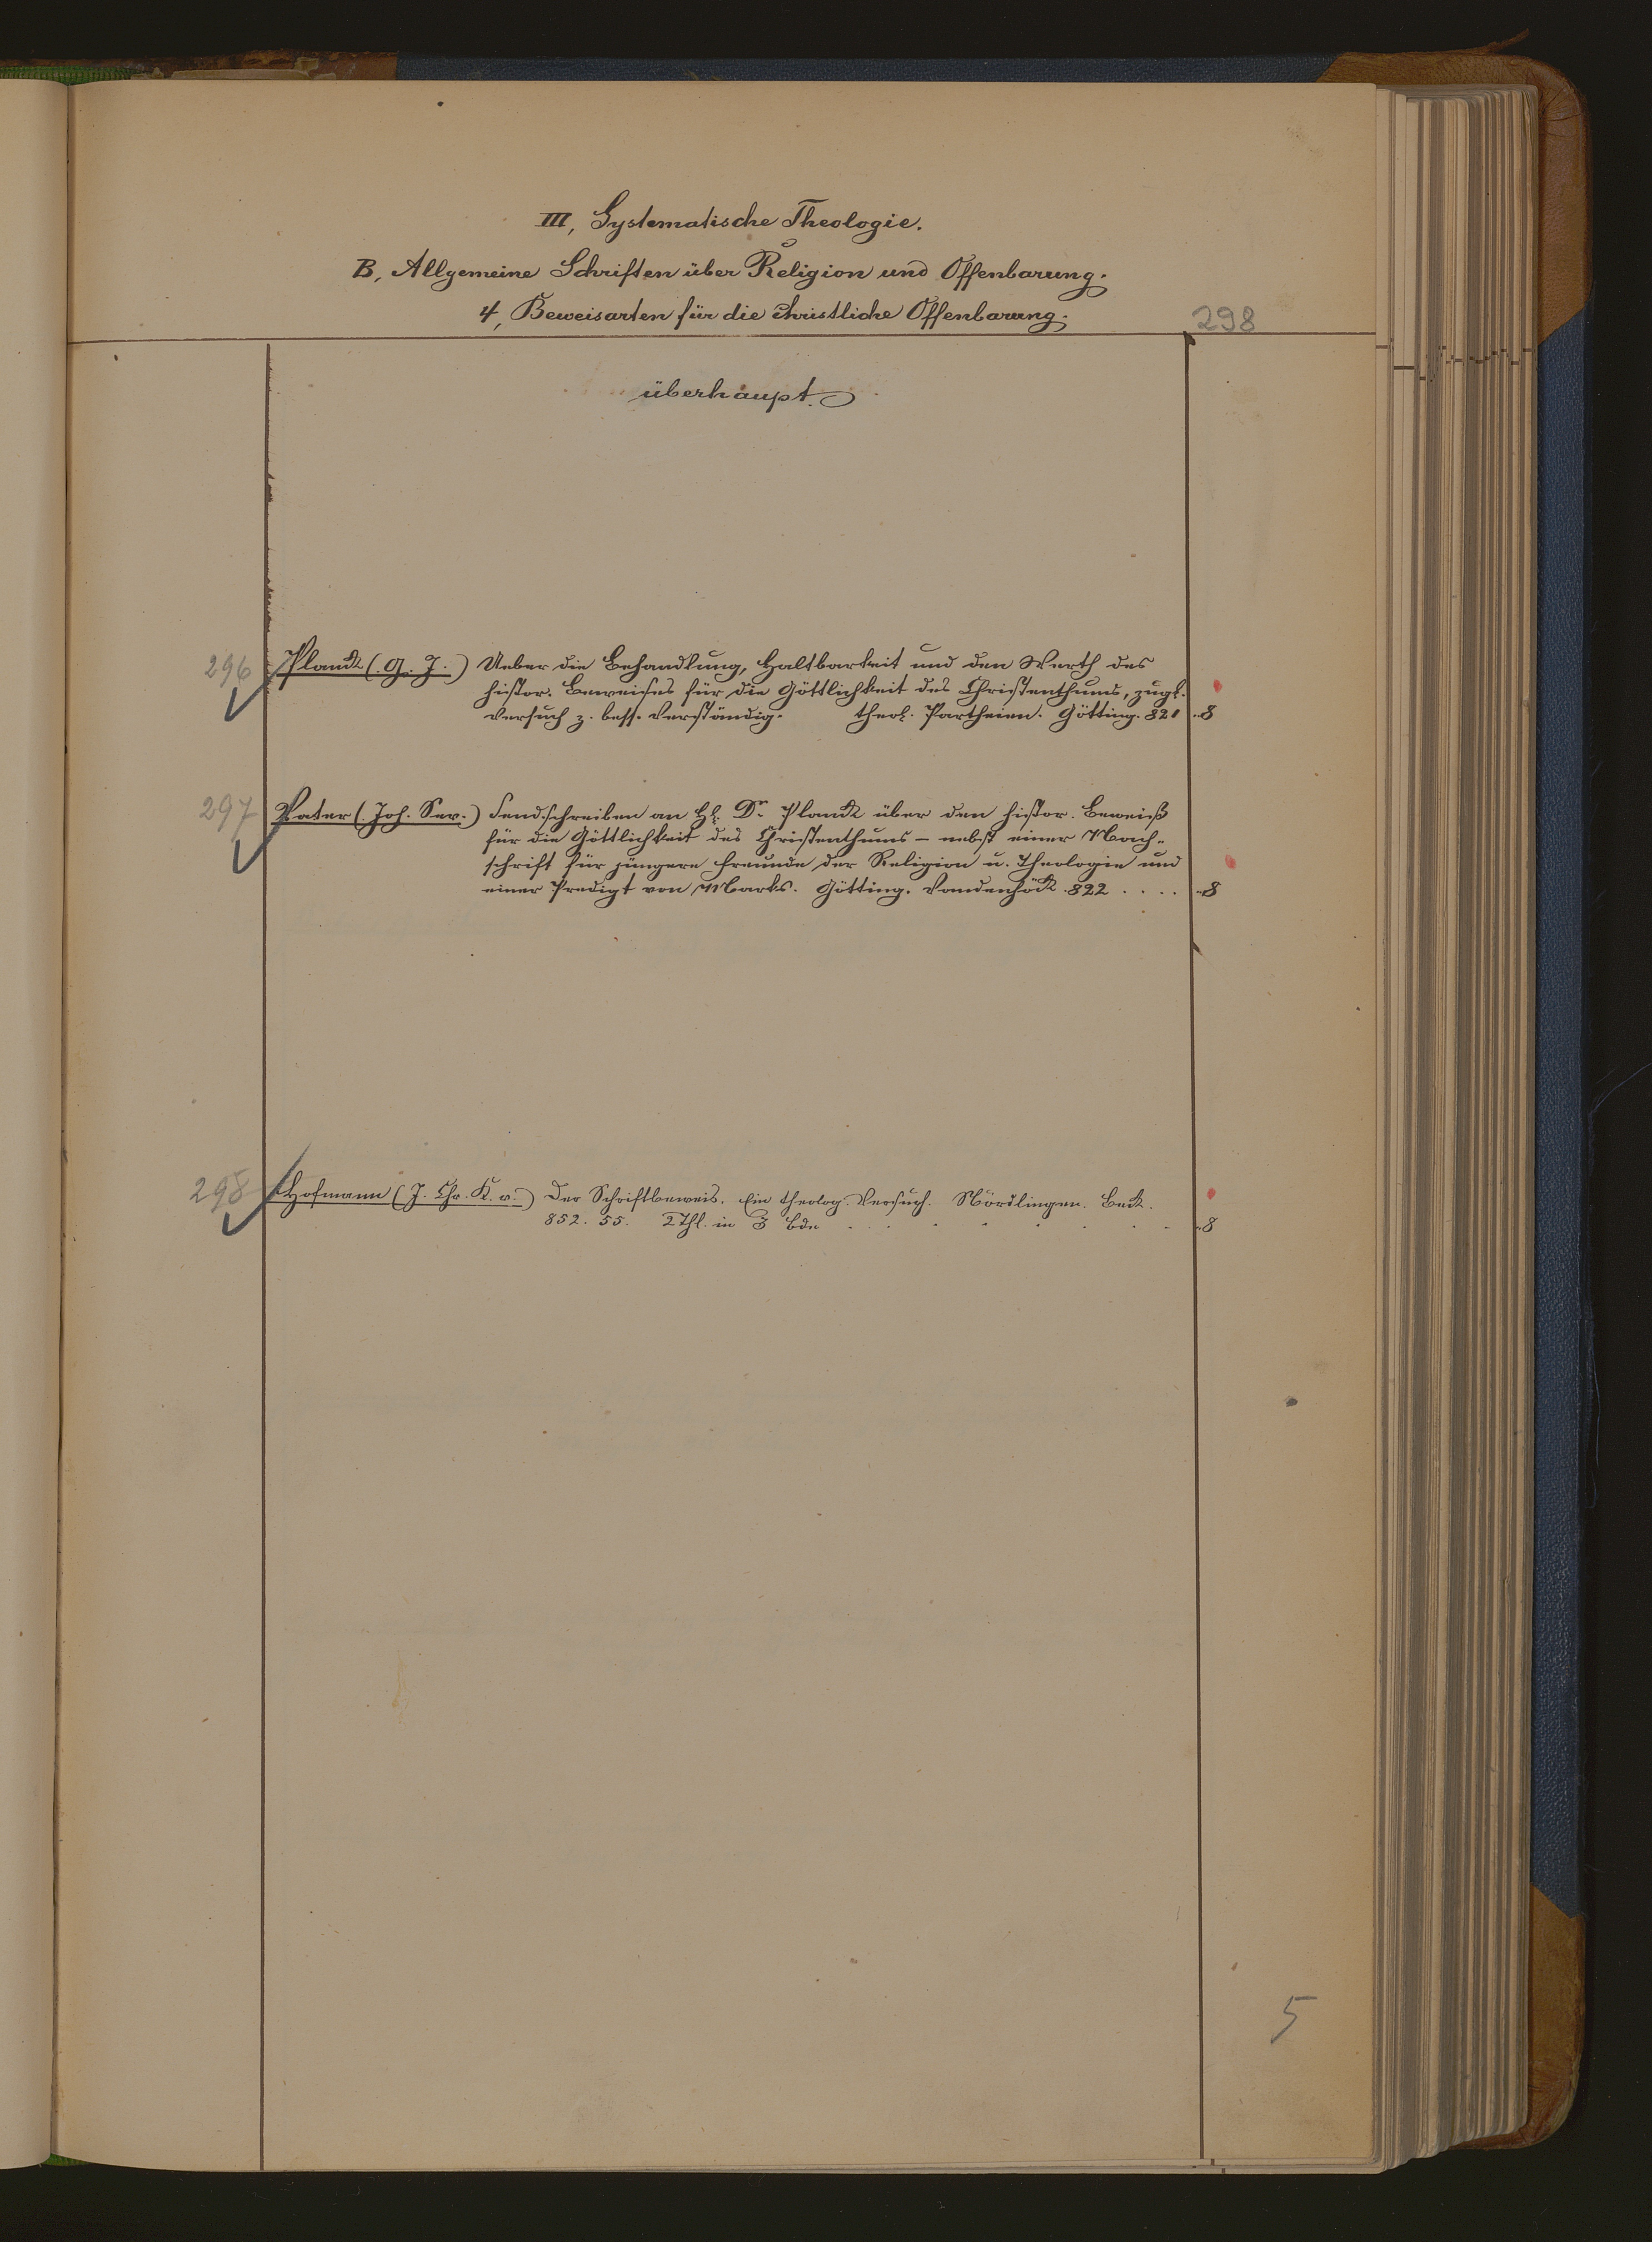 III, Systematische Theologie.
B, Allgemeine Schriften über Religion und Offenbarung.
4, Beweisarten für die christliche Offenbarung.
298
überhaupt.
296 Planck (G. J.) Ueber die Behandlung, Haltbarkeit und den Werth des
histor. Beweises für die Göttlichkeit des Christenthums, zugl.
Versuch z. bess. Verständig. theol. Partheien. Götting. 821 8
297 Vater (Joh. Sev.) Sendschreiben an H. Dr Planck über den histor. Beweiß
für die Göttlichkeit des Christenthums – nebst einer Nach-
schrift für jüngere Freunde der Religion u. Theologie und
einer Predigt von Marks. Götting. Vandenhöck 822 . . . . 8
298 Hofmann (J. Chr. K. v.) Der Schriftbeweis. Ein theolog. Versuch. Nördlingen. Beck.
852. 55. 2 Thl. in 3 Bde . . . . . . . . 8
5